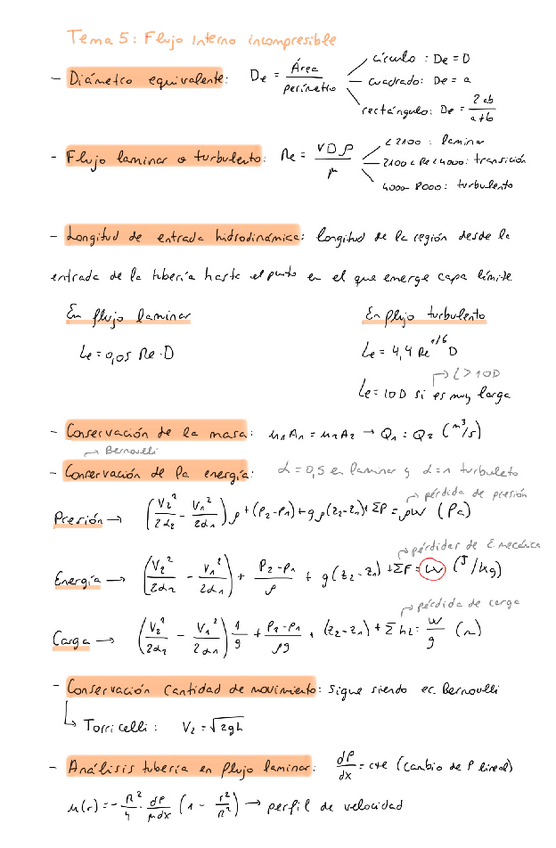 Tema 5: Flujo Interno incompresible
- Diámetro equivalente: De = Área / perímetro
círculo : De = D
cuadrado: De = a
rectángulo: De = 2ab / a+b
- Flujo laminar o turbulento: Re = VDρ / μ
< 2100 : laminar
2100 < Re < 4000: transición
4000 - 8000 : turbulento
- Longitud de entrada hidrodinámica: longitud de la región desde la
entrada de la tubería hasta el punto en el que emerge capa límite
En flujo laminar
Le = 0,05 Re · D
En flujo turbulento
Le = 4,4 Re^1/6 D
→ L > 10D
Le = 10D si es muy larga
- Conservación de la masa: u1A1 = u2A2 → Q1 = Q2 (m³/s)
→ Bernoulli
- Conservación de la energía: α = 0,5 en laminar y α = 1 turbuleto
→ pérdida de presión
Presión → (V2²/2α2 - V1²/2α1) ρ + (P2-P1) + gρ(z2-z1) + ΣP = ρW (Pa)
→ pérdidas de E mecánica
Energía → (V2²/2α2 - V1²/2α1) + P2-P1/ρ + g(z2-z1) + ΣF = W (J/kg)
→ pérdida de carga
Carga → (V2²/2α2 - V1²/2α1) 1/g + P2-P1/ρg + (z2-z1) + Σ hL = W/g (m)
- Conservación Cantidad de movimiento: sigue siendo ec. Bernoulli
↳ Torricelli : V2 = √2gh
- Análisis tubería en flujo laminar: dP/dx = cte (cambio de P lineal)
u(r) = - R²/4 · dP/μdx (1 - r²/R²) → perfil de velocidad